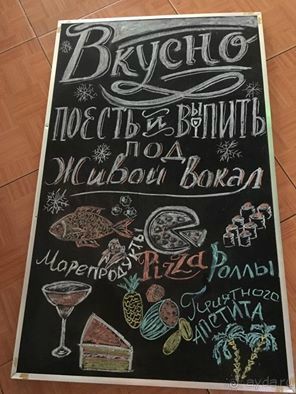 Вкусно
поесть и выпить
под
Живой вокал
Морепродукты
Pizza
Роллы
Приятного
аппетита
ayda.ru